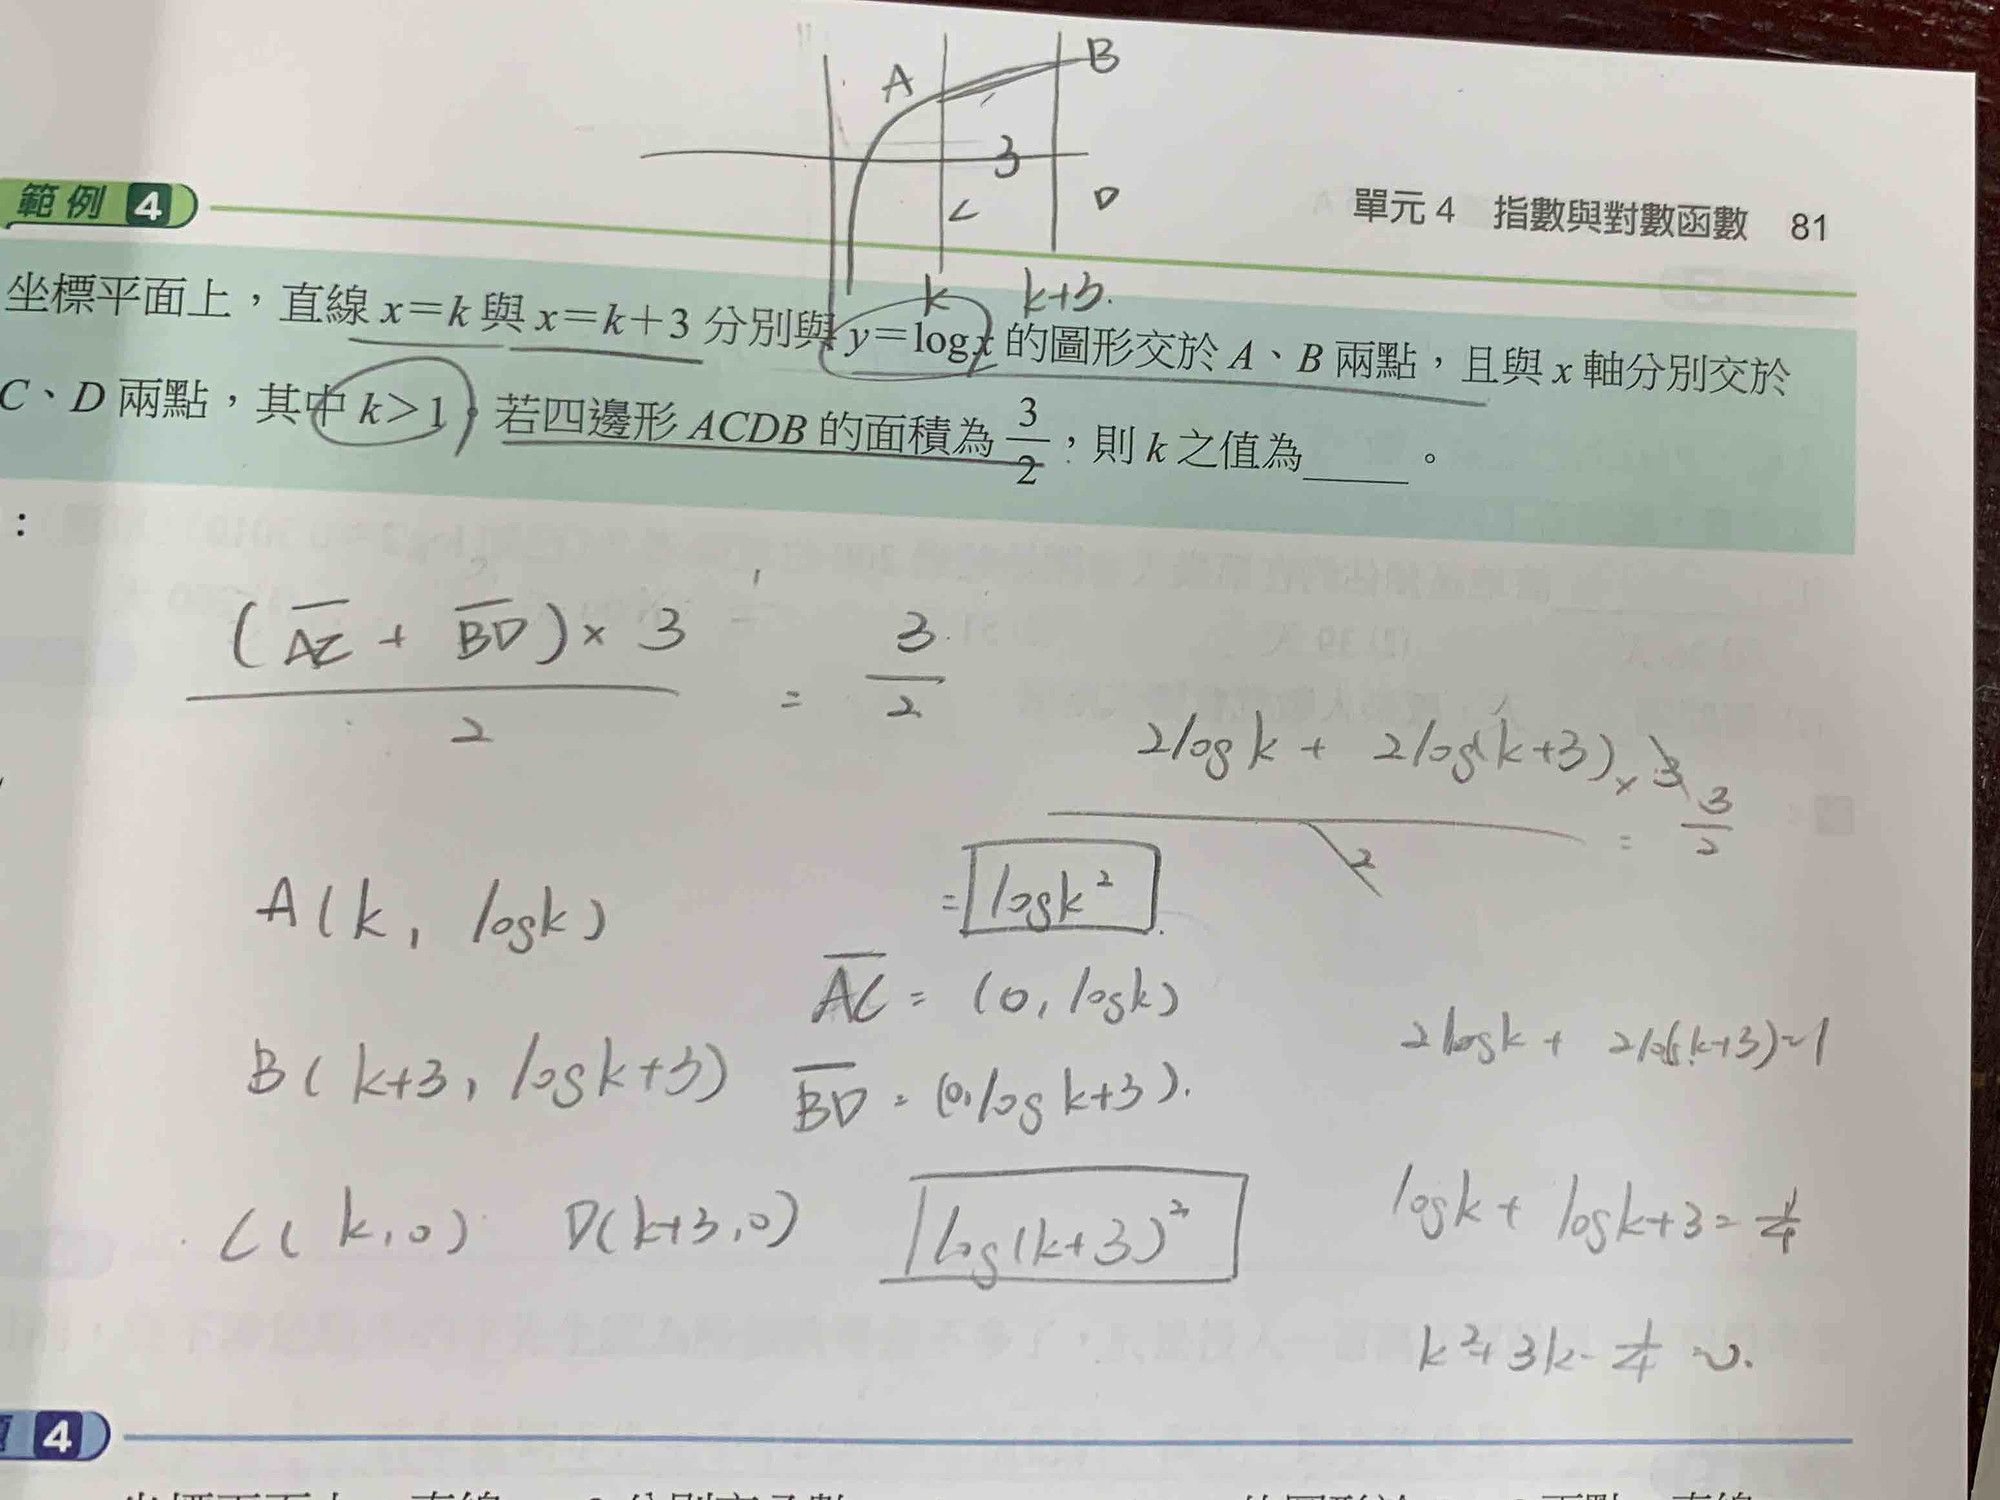 A
B
3
C
D
k
k+3.
範例 4
單元 4 指數與對數函數 81
坐標平面上,直線 x=k 與 x=k+3 分別與 y=logx 的圖形交於 A、B 兩點,且與 x 軸分別交於
C、D 兩點,其中 k>1,若四邊形 ACDB 的面積為 3/2,則 k 之值為____。
:
(AC + BD) × 3 / 2 = 3/2
2logk + 2log(k+3) × 3 / 2 = 3/2
A(k, logk)
= logk²
AC = (0, logk)
B(k+3, logk+3)
BD = (0, log k+3).
2logk + 2log(k+3)=1
C(k,0) D(k+3,0)
log(k+3)²
logk + logk+3 = 1/4
k²+3k-1/4=0.
4